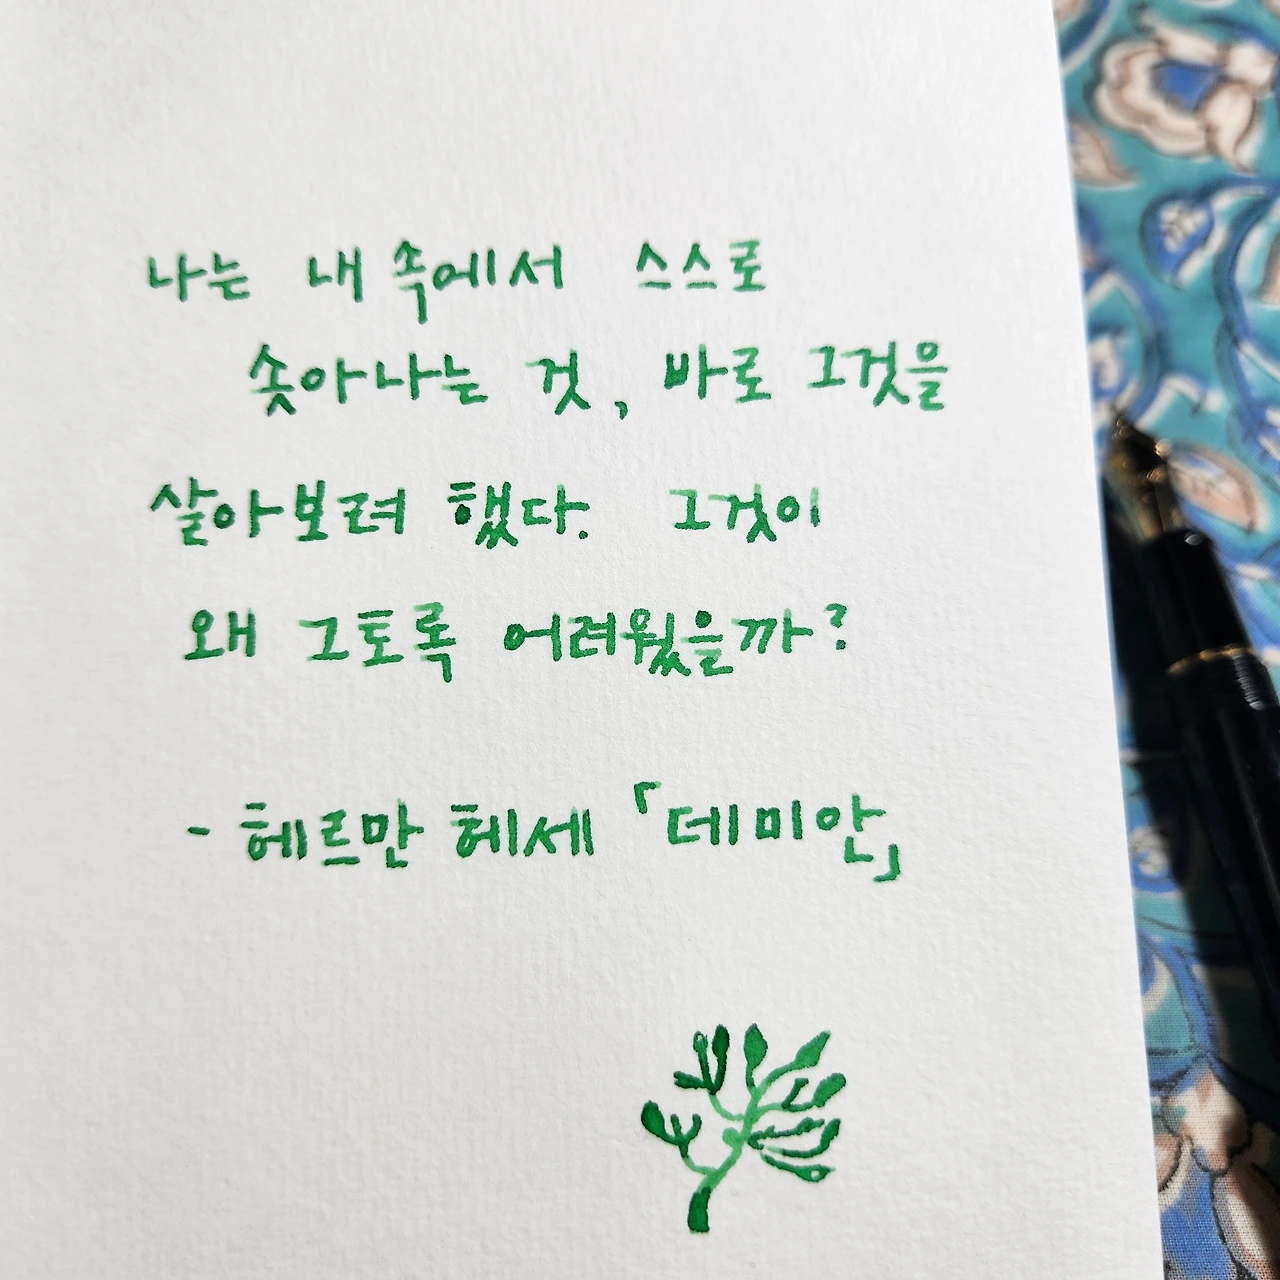 나는 내 속에서 스스로
솟아나는 것, 바로 그것을
살아보려 했다. 그것이
왜 그토록 어려웠을까?
- 헤르만 헤세 「데미안」